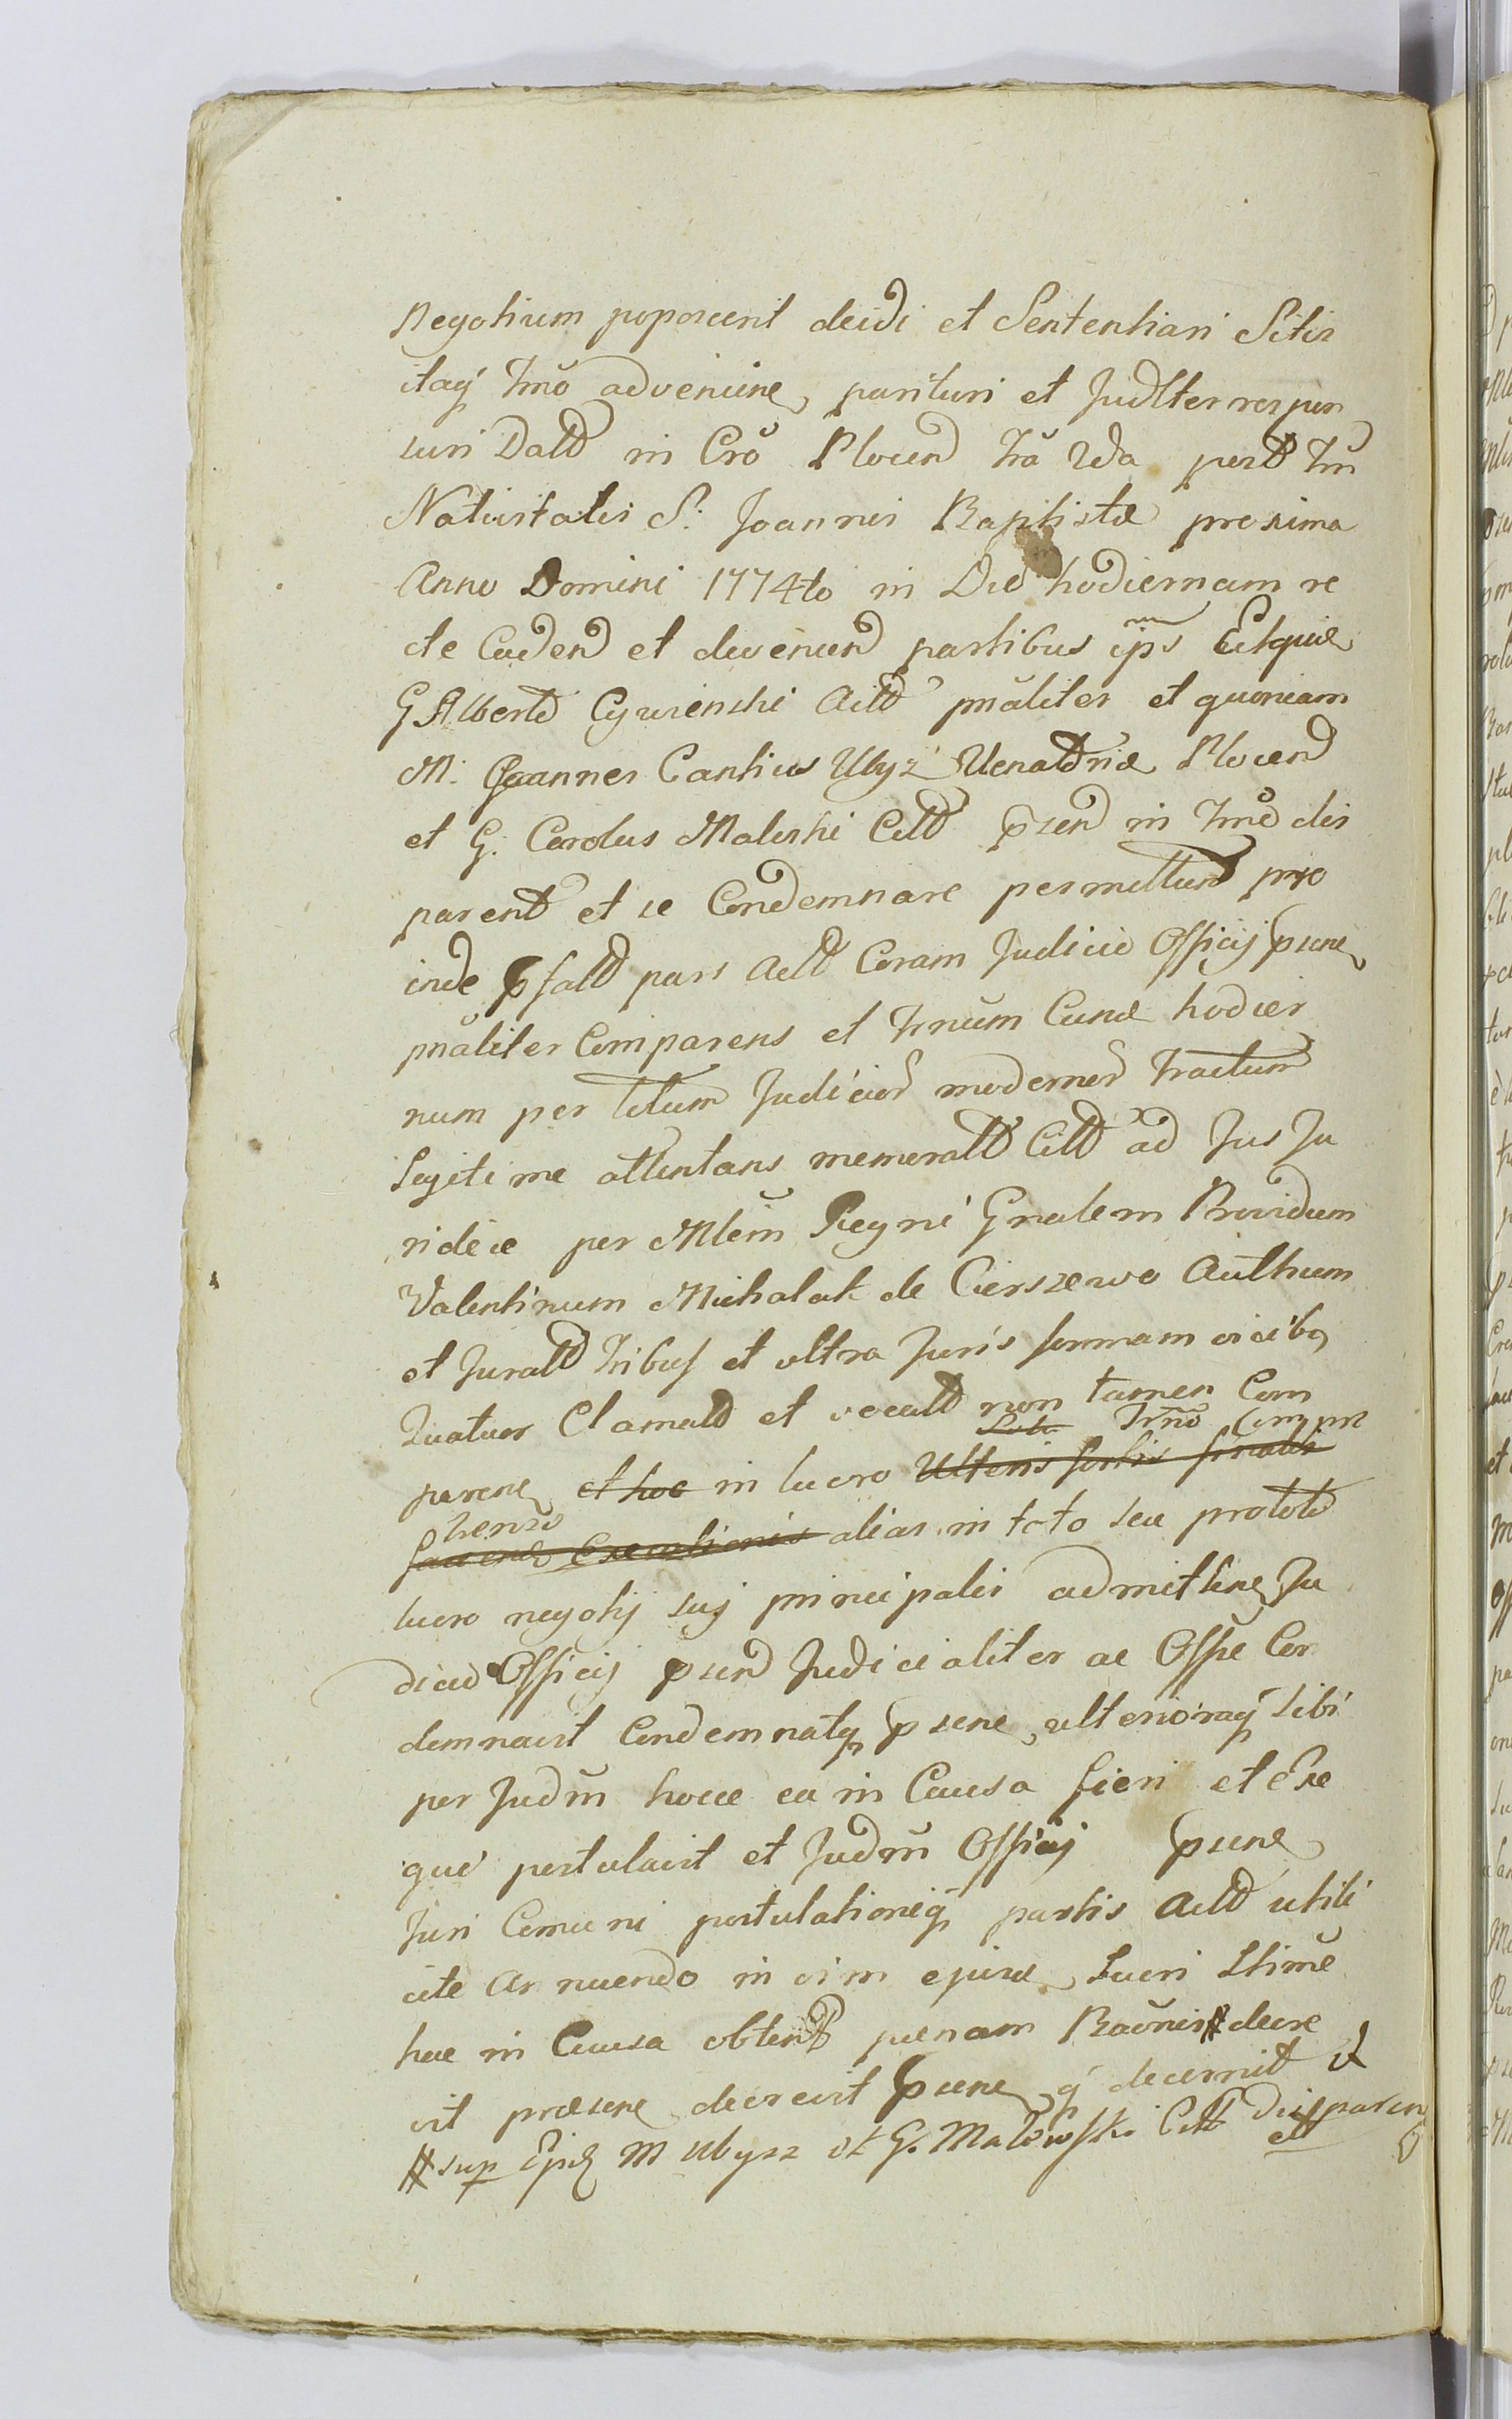 Negotium poposcerit decidi et Sententiari Sitis
itaq́ Trnõ advenien, parituri et Judlter respon
suri Datt in Crõ Plocen Fra 2da post Fm
Nativitatis S. Joannis Baptistæ proxima
Anno Domini 1774to in Die hodiernam re
cte Caden et devenien partibus ip̃s Eitquæ
G Albertt Cywinski Actt pnãliter et quoniam
M: Joannes Cantius Ubyz Venattriæ Plocen
et G. Carolus Maleski Citt psen in Trnõ dis
parent et se Condemnare permittunt pro
inde pfatt pars Actt Coram Judicio Officij psen
pnãliter Comparens et Trnũm Causæ hodier
num per totum Judicior modernor Tractum
Legitime attentans memoratt Citt ad Jus Ju
ridice per Mlem̃ Regni Gnalem Providum
Valentinum Michalak de Cierszewo Authum
et Juratt Tribus et ultra Juris formam vicibq
Quatuor Clamatt et vocatt non tamen Com
paren et hoc in lucro Ulteris fortis finalis
Trnõ Compre
henso
facien Executionis alias in toto seu protott
lucro negotij sui principalis admitten Ju
dicio Officij psen Judicialiter ac Offse Con
demnavit Condemnatq psen, ulterioraq́ sibi
per Judm̃ hocce ea in Causa fieri et Exe
qui postulavit et Judm̃ Officij psen
Juri Comuni postulationiq́ partis Actt utili
ate Annuendo in vim ejusd Lucri Stimẽ
hac in Causa obtent pænam Baõnis # decre
vit præsen decrevit psen q́ decernit et
# sup Epis M Ubysz et G. Malewski Citt disparen